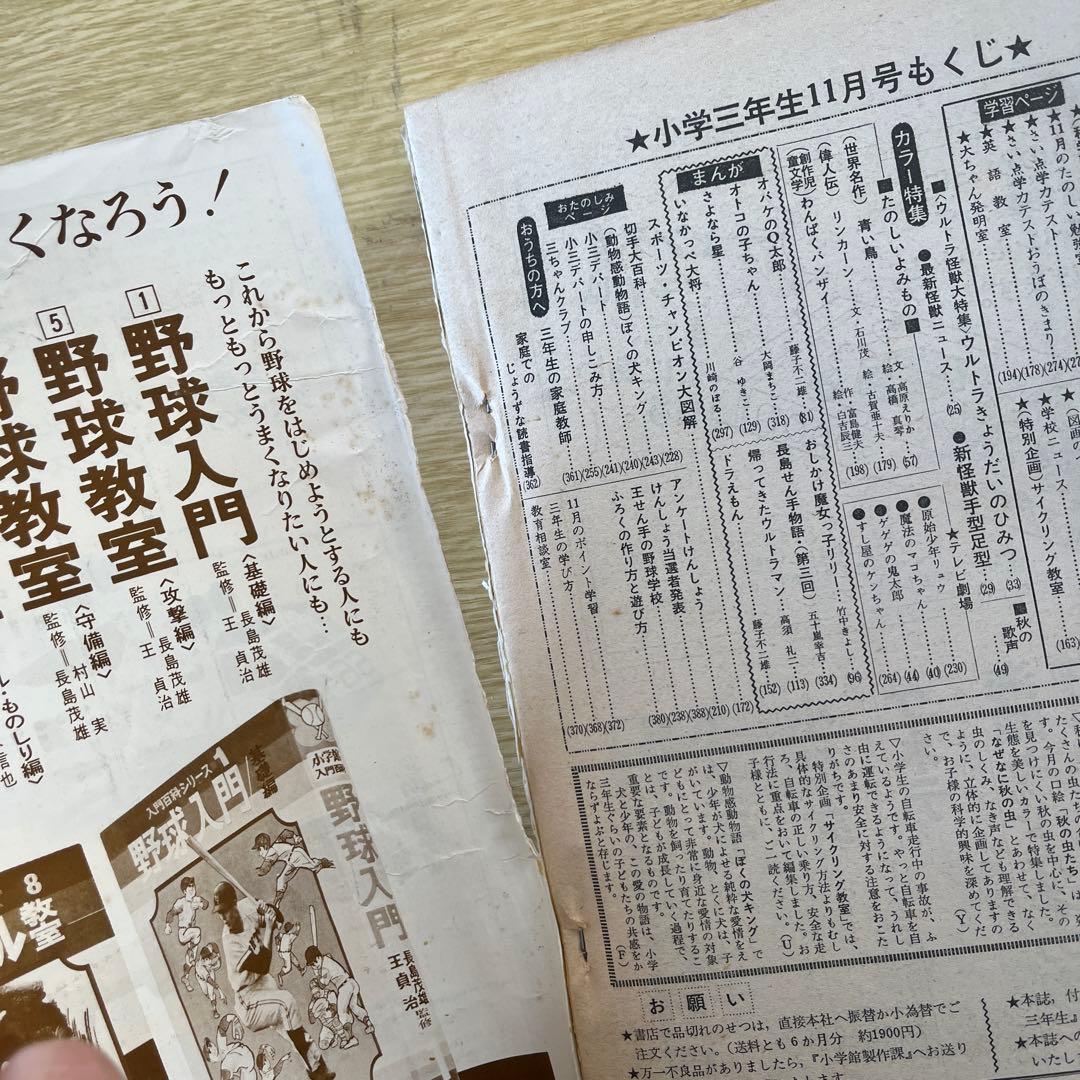 くなろう!
これから野球をはじめようとする人にも
もっともっとうまくなりたい人にも…
1
野球入門
〈基礎編〉
監修=王 貞治
長島茂雄
5
野球教室
〈攻撃編〉
監修=王 貞治
長島茂雄
野球教室
〈守備編〉
村山 実
監修=長島茂雄
ル・ものしり編
信也
入門百科シリーズ1
野球入門/基礎編
野球入門
長島茂雄
王 貞治
監修
8
教室
★小学三年生11月号もくじ★
学習ページ
★11月のたのしい勉強室
★さい点学力テスト
★さい点学力テストおうぼのきまり
★英語教室
★大ちゃん発明室
(274)
(178)
(194)
★学校ニュース
★(特別企画)サイクリング教室
(163)
カラー特集
■〈ウルトラ怪獣大特集〉ウルトラきょうだいのひみつ (33)
●最新怪獣ニュース (25)
●新怪獣手型足型 (29)
■秋の歌声 (49)
■たのしいよみもの■
(世界名作) 青い鳥 文・高原えりか 絵・高橋真琴 (57)
(偉人伝) リンカーン 文・石川茂 絵・古賀亜十夫 (179)
(創作児童文学) わんぱくバンザイ 作 富島健夫 絵 白吉辰三 (198)
★テレビ劇場
●原始少年リュウ (230)
●魔法のマコちゃん (40)
●ゲゲゲの鬼太郎 (44)
●すし屋のケンちゃん (264)
まんが
オバケのQ太郎 藤子不二雄 (81)
オトコの子ちゃん 大岡まちこ (318)
さよなら星 谷 ゆきこ (129)
いなかっぺ大将 川崎のぼる (297)
おしかけ魔女っ子リリー 竹中きよし (96)
長島せん手物語・(第三回) 五十嵐幸吉 (334)
帰ってきたウルトラマン 高須 礼二 (113)
ドラえもん 藤子不二雄 (152)
おたのしみページ
スポーツ・チャンピオン大図解 (228)
切手大百科 (243)
(動物感動物語)ぼくの犬キング (240)
小三デパート (241)
小三デパートの申しこみ方 (255)
三ちゃんクラブ (361)
アンケートけんしょう (172)
けんしょう当選者発表 (210)
王せん手の野球学校 (388)
ふろくの作り方と遊び方 (238)
(380)
おうちの方へ
三年生の家庭教師
家庭での
じょうずな読書指導 (362)
11月のポイント学習 (372)
三年生の学び方 (368)
教育相談室 (370)
今月の口絵「秋の虫たち」は
を見つけにくい秋の虫を中心に、その
生態を美しいカラーで特集しました。
「なぜなに秋の虫」とあわせて、なく
虫のしくみ、なき声なども理解できる
ように、立体的に企画してありますの
で、お子様の科学的興味を深めてくだ
さい。 (Y)
▽小学生の自転車走行中の事故が、ふ
えているようです。やっと自転車を自
由に運転できるようになって、うれし
さのあまり安全に対する注意をおこた
りがちです。
特別企画「サイクリング教室」では、
サイクリング方法よりもむしろ、自転車の正しい乗り方、安全な走
行法に重点をおいて編集しました。お
子様とともに、ご一読ください。(U)
▽動物感動物語「ぼくの犬キング」で
は、少年が犬によせる純粋な愛情をえ
がいています。動物、とくに犬は、子
どもにとって非常に身近な愛情の対象
です。動物を飼ったり育てたりするこ
とは、子どもが成長していく過程で、
重要な要素となるものです。
犬と少年の、この愛の物語は、小学
三年生ぐらいの子どもたちの共感をか
ならずよぶと存じます。 (F)
お願い
★書店で品切れのせつは,直接本社へ振替か小為替でご
注文ください。(送料とも6か月分 約1900円)
★万一不良品がありましたら,『小学館製作課』へお送り
★本誌,付
三年生』
★本誌への
いたし